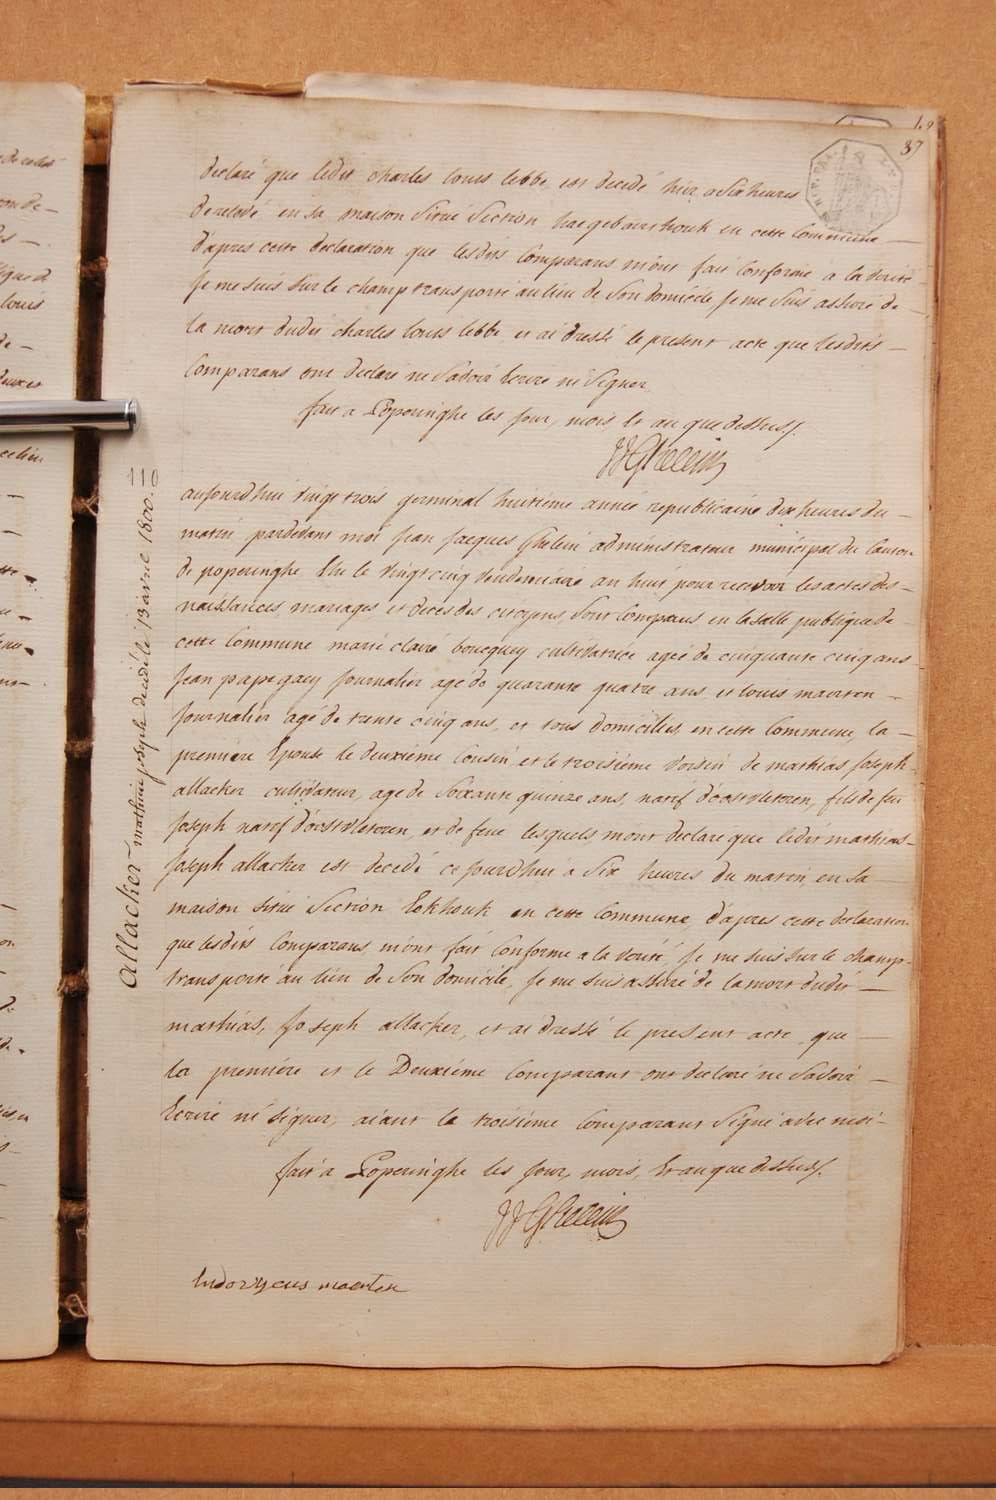 37
declaré que ledit charles louis lebbe est decedé hier a six heures
de relevé en sa maison situé Section haegebaerthouk en cette Commune
d'apres cette declaration que lesdits Comparans m'ont fait Conforme a la verité
Je me suis sur le champ transporté au lieu de Son domicile Je me suis assuré de
la mort dudit charles louis lebbe et ai dressé le present acte que lesdits
Comparans ont declaré ne Savoir Ecrire ni Signer
fait a Poperinghe les jour, mois et an que dessus.
JJ Ghelein
110
allacker mathieu joseph decédé 13 avril 1800.
aujourd'hui vingt trois germinal huitieme année republicaine dix heures du
matin pardevant moi Jean Jacques Ghelein administrateur municipal du Canton
de poperinghe Elu le vingt cinq vendemiaire an huit pour recevoir les actes des
naissances, mariages et decès des citoyens, Sont Comparus en la Salle publique de
cette Commune marie claireboucquey cultivatrice agée de cinquante cinq ans
Jean papegaey Journalier agé de quarante quatre ans et louis maerten
Journalier agé de trente cinq ans, et tous domiciliés en cette Commune, la
premiere Epouse le deuxième Cousin, et le troisième Voisin de mathias Joseph
allacker cultivateur, age de Soixante quinze ans, natif d'oostvleteren, fils de feu
Joseph natif d'oostvleteren, et de feue lesquels m'ont declare que ledit mathias
Joseph allacker est decedé ce jourd'hui a Six heures du matin, en sa
maison situé Section Eekhouk en cette Commune, d'apres cette declaration
que lesdits Comparans, m'ont fait Conforme a la verité, Je me suis sur le champ
transporté au lieu de Son domicile, Je me suis assuré de la mort dudit
mathias, Joseph allacker, et ai dressé le present acte que
la première et le Deuxième Comparant ont declaré ne Savoir
Ecrire ni Signer, aiant le troisième Comparant Signé avec moi
fait a Poperinghe les Jour, mois, Et an que dessus.
JJ Ghelein
ludovycus maerten